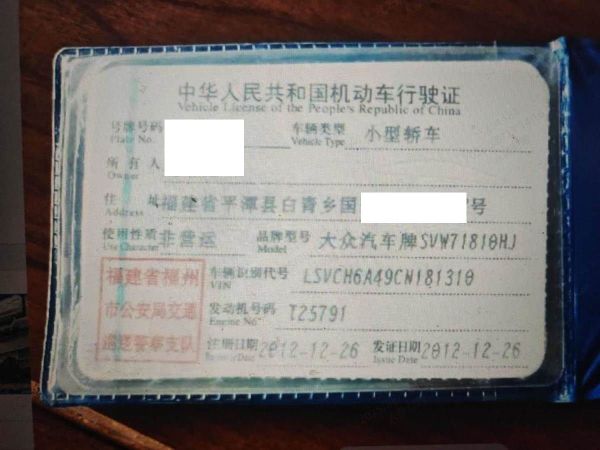 中华人民共和国机动车行驶证
Vehicle License of the People's Republic of China
号牌号码 车辆类型 小型轿车
Plate No. Vehicle Type
所有人
Owner
住址 福建省平潭县白青乡国 号
Address
使用性质 非营运 品牌型号 大众汽车牌SVW71810HJ
Use Character Model
福建省福州 车辆识别代号 LSVCH6A49CN181310
VIN
市公安局交通 发动机号码 T25791
Engine No.
巡逻警察支队 注册日期 2012-12-26 发证日期 2012-12-26
Register Date Issue Date